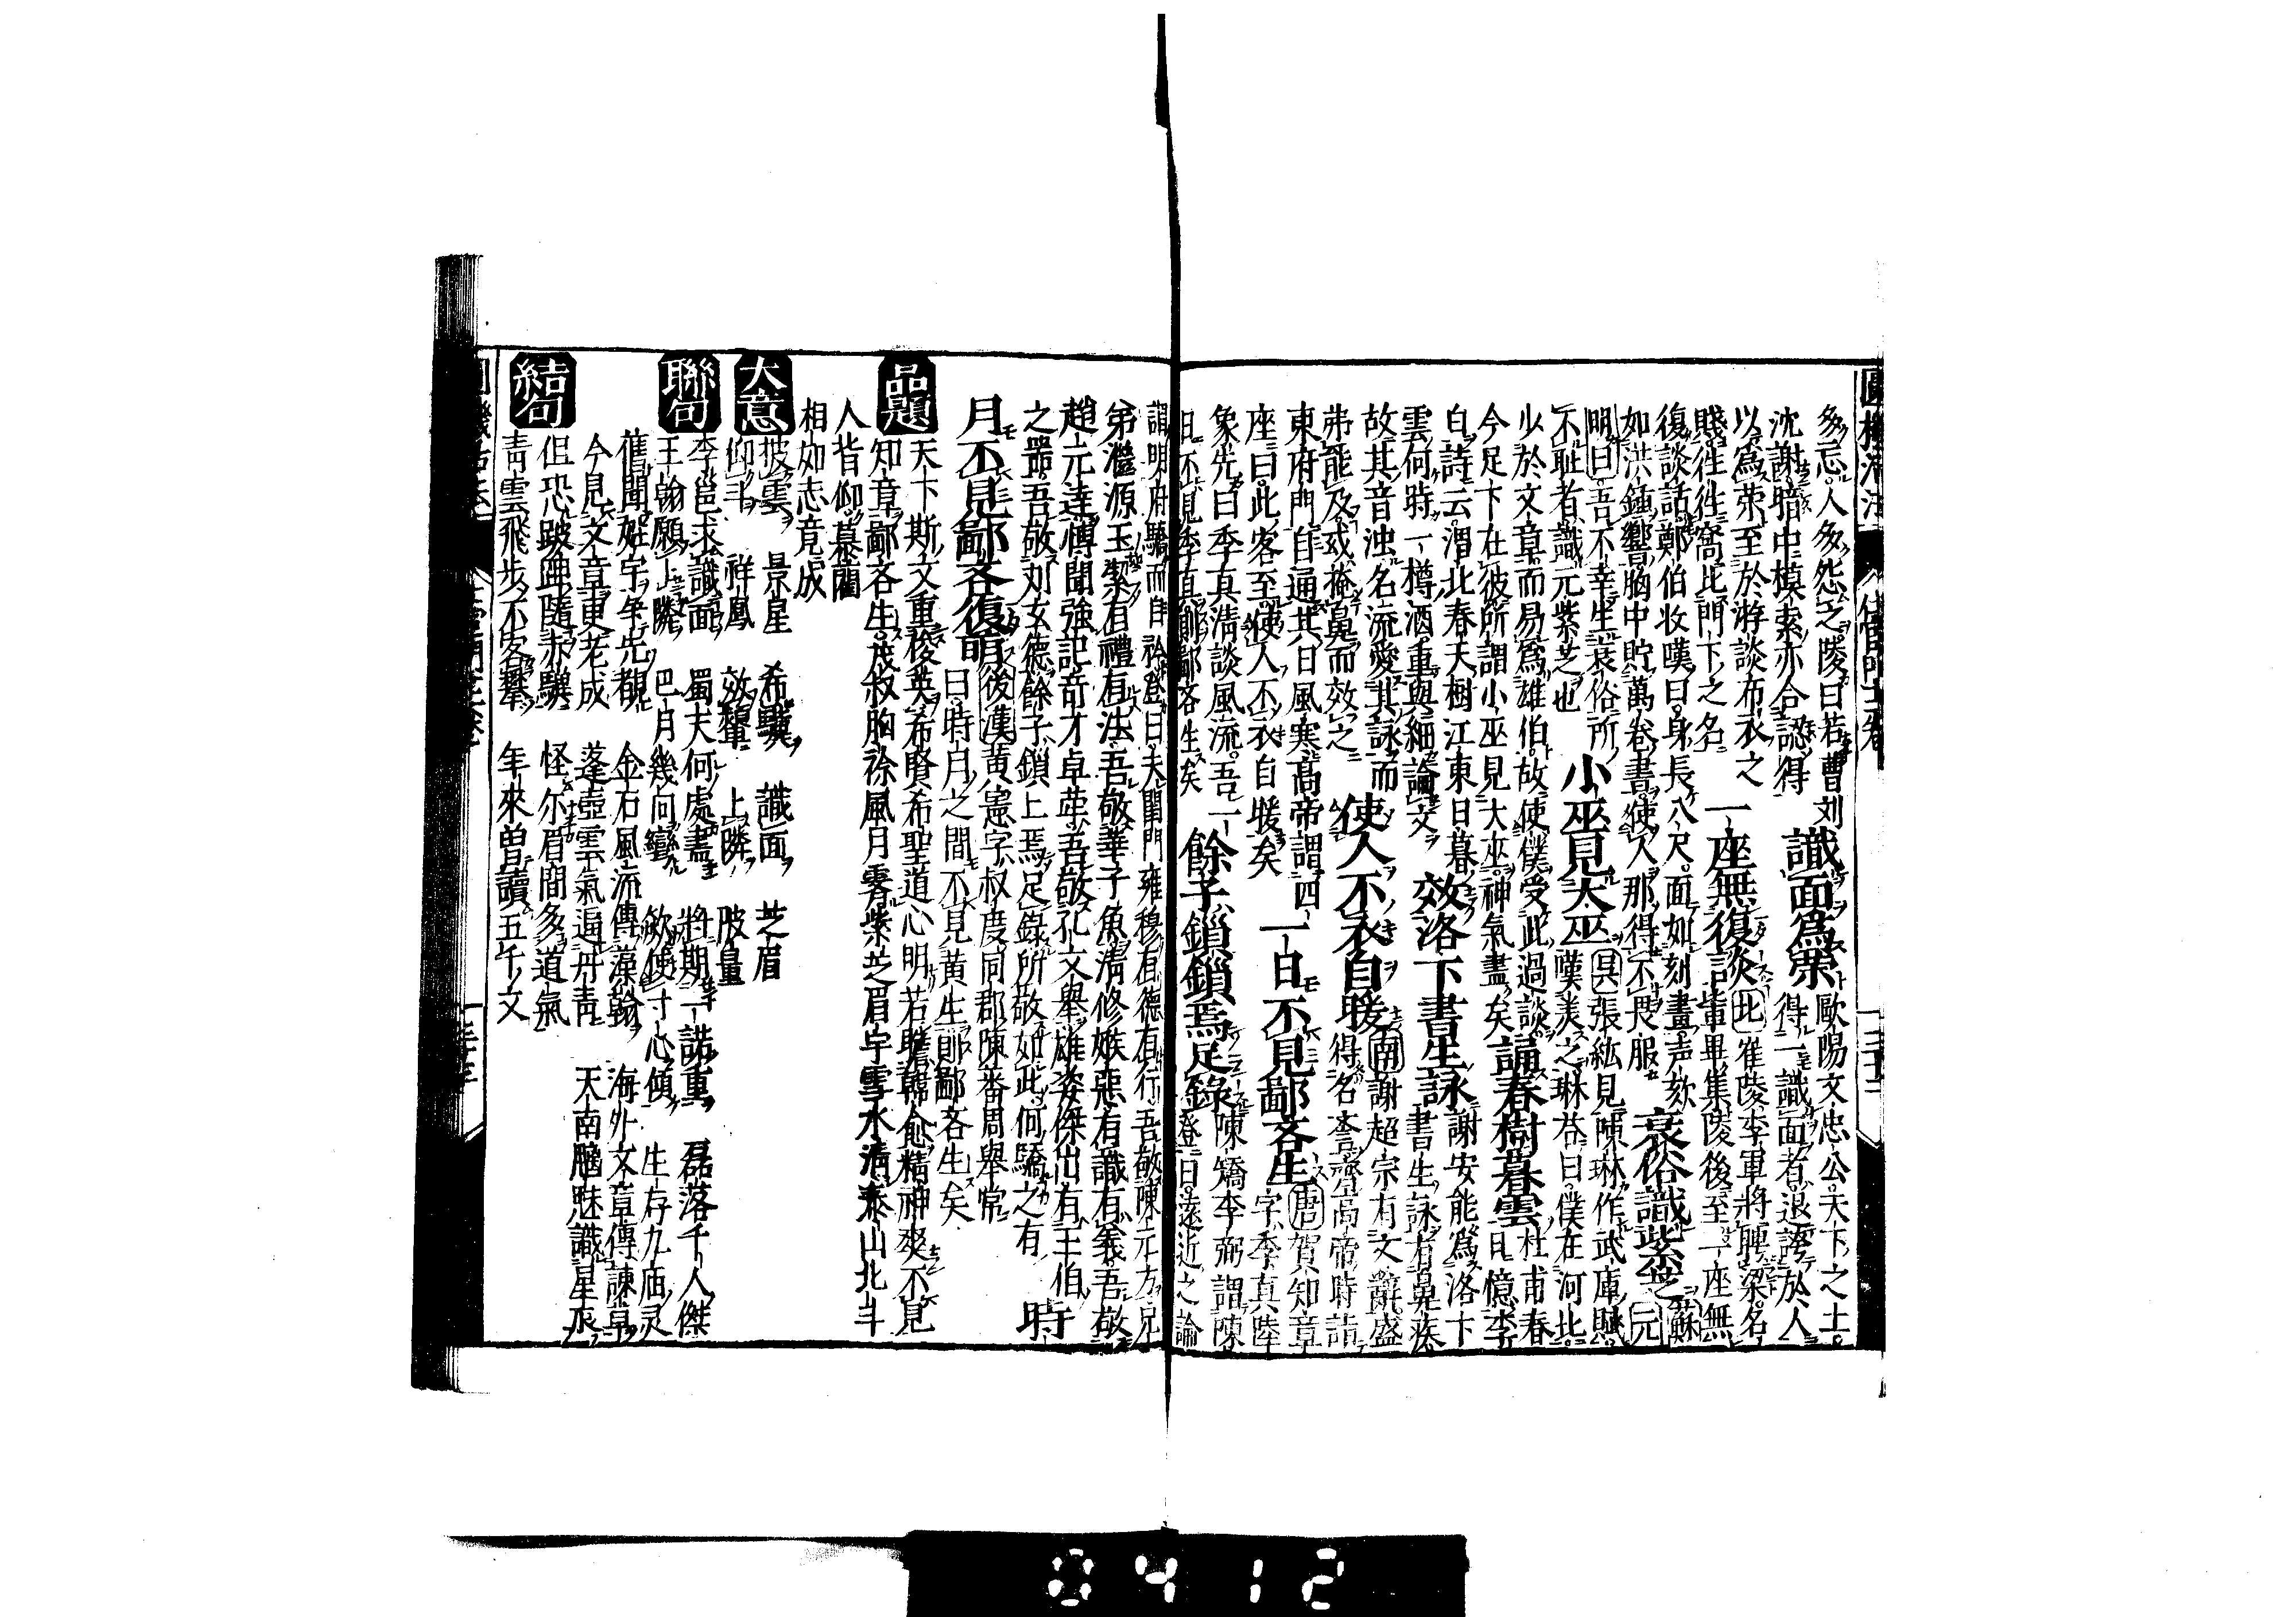 多忘人多怨之陵曰若曹刘　識面爲榮　歐陽文忠公天下之士
沈謝暗中摸索亦合認得　得一識面者退誇於人
以爲荣至於游談布衣之
賤往往窩此門下之名　一座無復談　北崔陵李軍將聘梁名
復談話鄭伯收嘆曰身長八尺面如刻畫声欬
如洪鍾響胸中貯萬卷書使人那得不畏服　哀俗識紫芝　蘇
明曰吾不幸生衰俗所　小巫見大巫　吳張紘見陳琳作武庫賦
不耻者識元紫芝也　嘆美之琳荅曰僕在河北
少於文章而易爲雄伯故使僕受此過談
今足下在彼所謂小巫見大巫神氣盡矣　誦春樹暮雲　杜甫春日憶李
白詩云渭北春天樹江東日暮
雲何時一樽酒重與細論文　效洛下書生詠　謝安能爲洛下
書生詠有鼻疾
故其音浊名流愛其詠而
弗能及或掩鼻而效之　使人不衣自暖　南謝超宗有文辭盛
得名
東府門自通其日風寒高帝謂四
座曰此客至使人不衣自暖矣　一日不見鄙吝生　唐賀知章
字季真陸
象先曰季真清談風流吾一
日不見季真則鄙吝生矣　餘子鎖鎖焉足錄　陳矯李弼謂陳
登曰遠近之論
謂明府驕而自矜登曰夫閨門雍穆有德有行吾敬陳元方兄
弟淵源玉潔有禮有法吾敬華子魚清修嫉惡有識有義吾敬
趙元達博聞強記奇才卓犖吾敬孔文舉雄姿傑出有王伯
之器吾敬刘玄德餘子鎖上焉足錄所敬如此何驕之有　時
月不見鄙吝復萌　後漢黃憲字叔度同郡陳蕃周舉常
曰時月之間不見黃生則鄙吝生矣
品題　天下斯文重後英希賢希聖道心明若瞻韓愈精神爽不見
知章鄙吝生茂叔胸襟風月霽紫芝眉宇雪水清泰山北斗
人皆仰慕藺
相如志竟成
大意　披雲　景星　希驥　識面　芝眉
仰斗　祥鳳　效顰　上隣　陂量
聯句　李邕求識面　蜀夫何處盡　將期一諾重　磊落千人傑
王翰願上隣　巴月幾向彎　欻使寸心傾　生存九庙灵
舊聞姓字年光覩　金石風流傳藻翰　海外文章傳諫草
今見文章更老成　蓬壺雲氣逼丹青　天南魑魅識星辰
結句　但恐跛踔隨赤驥　怪尔眉間多道氣
青雲飛步不容攀　年來曽讀五千文
0412